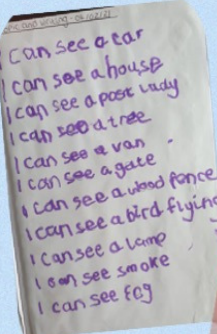 and writing - 04/02/21
I can see a car
I can see a house
I can see a post lady
I can see a tree
I can see a van
I can see a gate
I can see a wood fence
I can see a bird flying
I can see a lamp
I can see smoke
I can see fog